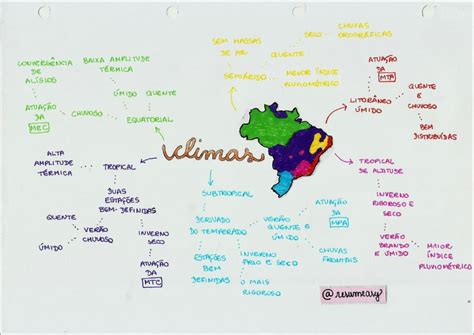 SEM MASSAS
DE AR
SECO
CHUVAS
OROGRÁFICAS
QUENTE
SEMIÁRIDO
MENOR ÍNDICE
PLUVIOMÉTRICO
CONVERGÊNCIA
DE
ALÍSIOS
BAIXA AMPLITUDE
TÉRMICA
ÚMIDO
QUENTE
ATUAÇÃO
DA
MEC
CHUVOSO
EQUATORIAL
ATUAÇÃO
DA
MTA
LITORÂNEO
ÚMIDO
QUENTE
E
CHUVOSO
BEM
DISTRIBUÍDAS
climas
ALTA
AMPLITUDE
TÉRMICA
TROPICAL
DUAS
ESTAÇÕES
BEM-DEFINIDAS
QUENTE
ÚMIDO
VERÃO
CHUVOSO
INVERNO
SECO
ATUAÇÃO
DA
MTC
SUBTROPICAL
DERIVADO
DO TEMPERADO
ESTAÇÕES
BEM
DEFINIDAS
VERÃO
QUENTE E
ÚMIDO
ATUAÇÃO
DA
MPA
CHUVAS
FRONTAIS
INVERNO
FRIO E SECO
O MAIS
RIGOROSO
TROPICAL
DE ALTITUDE
INVERNO
RIGOROSO E
SECO
VERÃO
BRANDO
E ÚMIDO
MAIOR
ÍNDICE
PLUVIOMÉTRICO